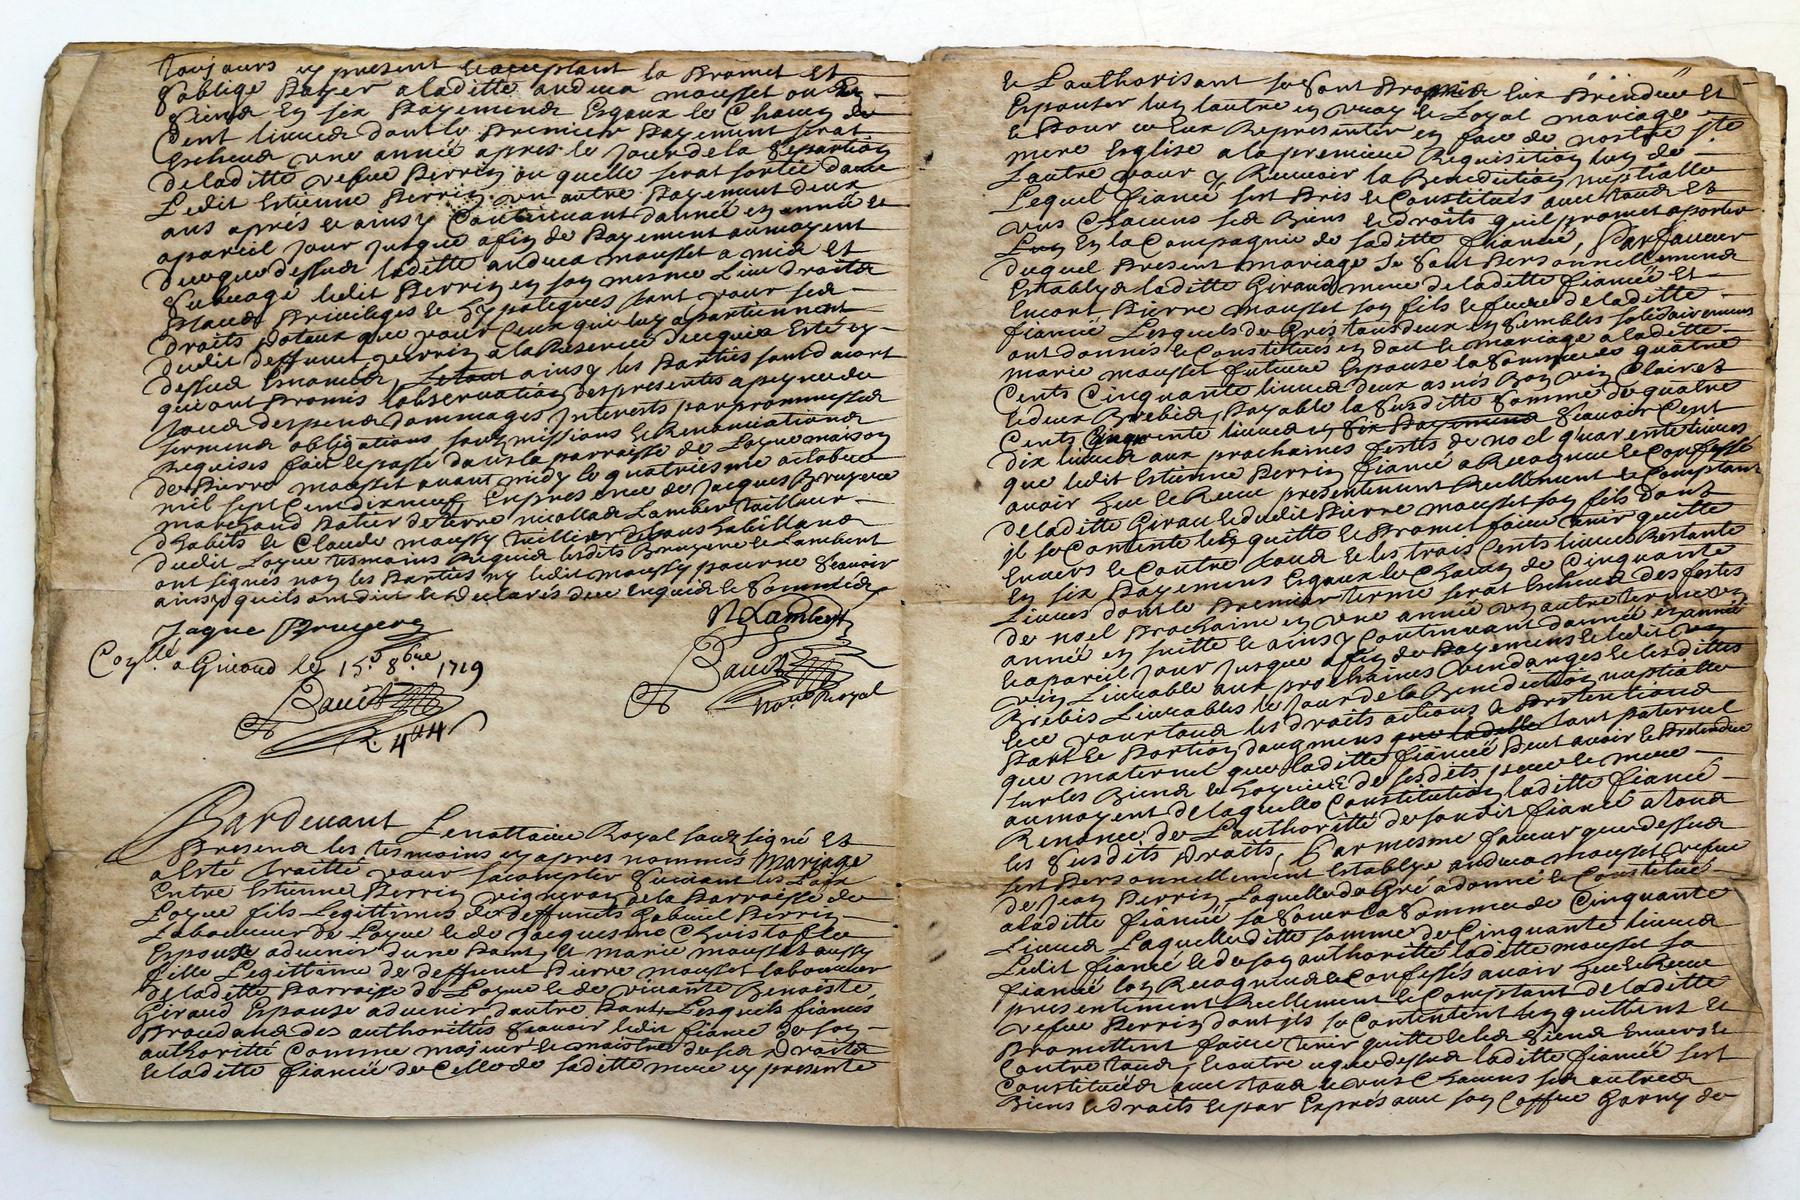 Toujours cy present et acceptant la Promet et
S'oblige Payer a laditte andrea mousset ou
Siens En six Payements Esgaux le Chacun de
Cent livres dont le Premier Payement serat
Escheus une année apres le Jour de la Separtion
de laditte vefue Perrin ou quelle serat sortie dauec
Ledit Estienne Perrin un autre Payement deux
ans après et ainsy Continuant dannée en année et
apareil Jour Jusque afin de Payement au moyent
Duquo dessus laditte andrea mousset a mis et
Subrogé ledit Perrin en son mesme Lieu droits
Places Privileges et hypoteques tant pour ses
droits dotaux que pour Ceux qui luy apartiennent
dudit deffunct perrin a la Reserve Ducquis Esté cy
dessus Emancés, Le tout ainsy les Parties sont dacort
qui ont Promis lobservation des presentes a peyne de
Tous despens dommages Interests par prommesses
serments obligations soubmissions et Renonciations
Requises fait et passé dans la parroisse de Loyse maison
de Pierre mousset auant midy le quatriesme octobre
mil sept Cent dix neuf En presence de Jacques Bruyere
marchand Potier de terre nicollas Lambert Tailleur
dhabits et Claude moussy Tuillier tous habittans
dudit Loyse tesmoins Requis lesdits Bruyere et Lambert
ont signés non les Parties ny ledit moussy pour ne Scauoir
ainsy quils ont dit et declarés deue enquis et Sommés
Jaque Bruyere
N Lambert
Con.lle a Giraud le 15.e 8bre 1719
Bardenant Le nottaire Royal soubsigné et
Presens les tesmoins cy apres nommés Mariage
a Esté traitté pour sacomplir Suivant les Loix
Entre Estienne Perrin vigneron de la Parroisse de
Loyse fils Legittimes de deffuncts Gabriel Perrin
Laboureur de Loyse et de Jacquesme Christofle
Espoux aduenir dune Part, et marie mousset aussy
fille Legittime de deffunct Pierre mousset laboureur
de laditte Parroisse de Loyse et de viuante Benoiste
Giraud Espouse aduenir dautre Part Lesquels fiancés
Procedans des authorittés Scauoir ledit fiancé de son
authoritté Comme majeur et maistre de ses Droits
et laditte fiancée de Celle de saditte mere cy presente
et L'authorisant se sont Promis Eux Prendre et
Espouser lun lautre en vray et Loyal mariage
et Pour ce Eux Representer en face de nostre ste
mere Esglise a la premiere Requisition lun de
Lautre pour y Recevoir la Benediction nuptialle
Lequel fiancé sest Pris et Constitués avec tous et
uns Chacuns ses Biens et droits quil promet aporter
En la Compagnie de saditte fiancée, Par faueur
duquel Present mariage Se sont Personnellement
Establys laditte Giraud mere de laditte fiancée et
Encort Pierre mousset son fils et frere de laditte
fiancée Lesquels de Gres tous deux ensembles solidairement
ont donnés et Constitués en dot et mariage a laditte
marie mousset future Espouse la Somme de quatre
Cents Cinquante livres deux asnés Bon vin Clairet
et deux Brebis, Payable la Susditte Somme de quatre
Cents Cinquente livres en six Payements Scauoir Cent
dix livres aux prochaines festes de noel quarente livres
que ledit Estienne Perrin fiancé a Recognue et Confessé
auoir Heu et Receu presentement Reellement et Comptant
de laditte Giraud et dudit Pierre mousset son fils dont
il se Contente les quitte et Promet faire tenir quitte
Envers et Contre Tous et les trois Cents livres Restante
En six Payemens Esgaux le Chacun de Cinquante
Livres dont le Premier terme serat Escheus des festes
de noel Prochaine en une année un autre terme un
année en suitte et ainsy Continuant dannée en année
et apareil Jour Jusque afin de Payement et ledit vin
vin Liurable aux prochaines Vendanges et lesdittes
Brebis Liurables le Jour de la Benediction nuptialle
et ce pour tous les droits actions et Pretentions
Part et Portion daugmens que laditte tant paternel
que maternel que laditte fiancée Peut avoir et Pretendre
sur les Biens et hoyries de sesdits pere et mere
au moyent de laquelle Constitution laditte fiancée
Renonce de L'authoritté de sondit fiancé a tous
les Susdits Droits, Par mesme faueur que dessus
sest Personnellement Establye andrea mousset vefue
de Jean Perrin, Laquelle de Gré a donné et Constitué
a laditte fiancée sa Soeur la Somme de Cinquante
Livres Laquelle ditte somme de Cinquante livres
Ledit fiancé et de son authoritté laditte mousset sa
fiancée lon Recognue et Confessés auoir Heu et Receu
presentement Reellement et Comptant de laditte
vefue Perrin dont ils se Contentent len quittent et
Promettent faire tenir quitte et les Siens Envers et
Contre tous, et outre ce que dessus laditte fiancée sest
Constituée avec tous et uns Chacuns ses autres
Biens et droits et par Expres avec son Coffre Garny de